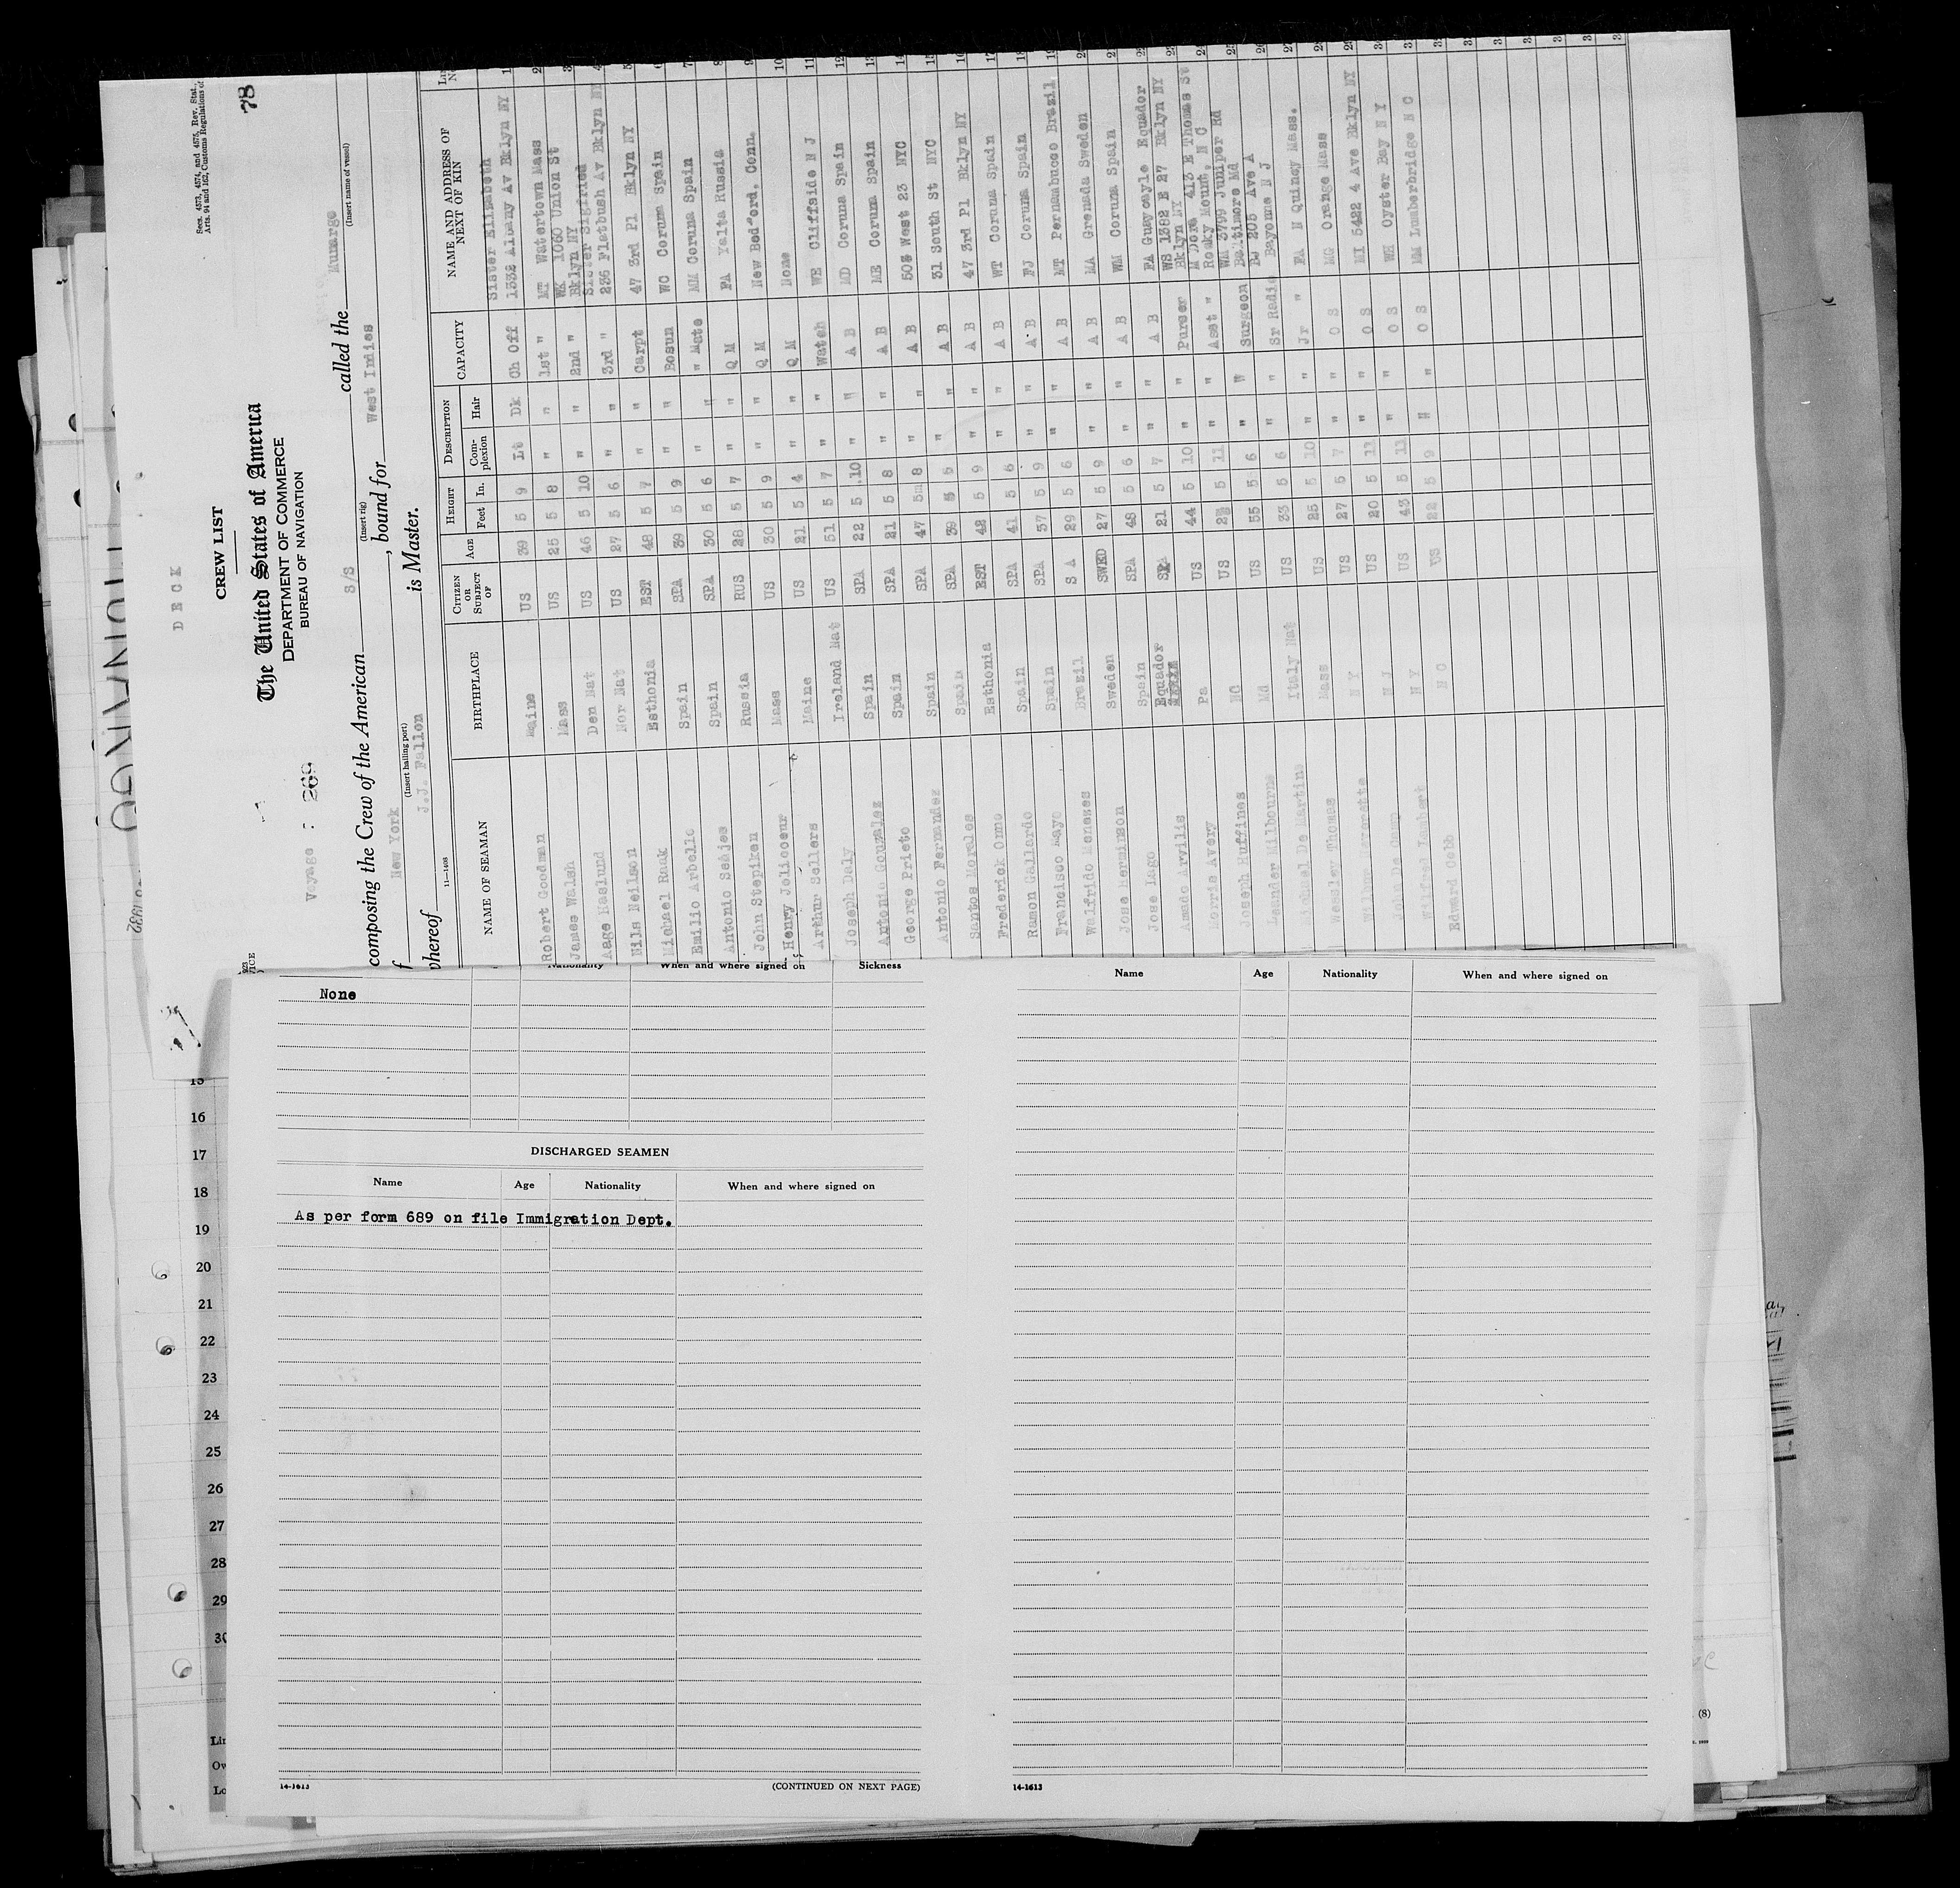 DECK
78
Secs. 4573, 4574, and 4575, Rev. Stat.
Arts. 94 and 162, Customs Regulations of
CREW LIST
The United States of America
DEPARTMENT OF COMMERCE
BUREAU OF NAVIGATION
Voyage : 269
composing the Crew of the American S/S called the Munargo
(Insert rig) (Insert name of vessel)
f New York, bound for West Indies
(Insert hailing port)
whereof J.J. Fallon is Master.
11—1403
NAME OF SEAMAN BIRTHPLACE CITIZEN OR SUBJECT OF AGE HEIGHT Feet In. DESCRIPTION Complexion Hair CAPACITY NAME AND ADDRESS OF NEXT OF KIN
Sister Elizabeth
Robert Goodman Maine US 39 5 9 Lt Dk Ch Off 1332 Albany Av Bklyn NY 1
James Walsh Mass US 25 5 8 " " 1st " MT Watertown Mass 2
WK 1060 Union St
Aage Haslund Den Nat US 46 5 10 " " 2nd " Bklyn NY 3
Sister Sigfried
Nils Neilson Nor Nat US 27 5 6 " " 3rd " 236 Flatbush Av Bklyn NY 4
Michael Rauk Esthonia EST 48 5 7 " " Carpt 47 3rd Pl Bklyn NY 5
Emilio Arbello Spain SPA 39 5 9 " " Bosun WC Coruna Spain 6
Antonio Seajes Spain SPA 30 5 6 " " " Mate MM Coruna Spain 7
John Stepiken Russia RUS 28 5 7 " " Q M FA Yalta Russia 8
Henry Jolicoeur Mass US 30 5 9 " " Q M New Bedford, Conn. 9
Arthur Sellers Maine US 21 5 4 " " Q M None 10
Joseph Daly Ireland Nat US 51 5 7 " " Watch WE Cliffside N J 11
Antonio Gonzalez Spain SPA 22 5 10 " " A B MD Coruna Spain 12
George Prieto Spain SPA 21 5 8 " " A B ME Coruna Spain 13
Antonio Fernandez Spain SPA 47 5 8 " " A B West 23 NYC 14
Santos Morales Spain SPA 39 5 " " A B 31 South St NYC 15
Frederick Onno Esthonia EST 42 5 9 " " A B 47 3rd Pl Bklyn NY 16
Ramon Gallardo Spain SPA 41 5 6 " " A B WT Coruna Spain 17
Francisco Mayo Spain SPA 37 5 9 " " A B FJ Coruna Spain 18
Walfrido Menezes Brazil S A 29 5 6 " " A B MT Pernabucco Brazil 19
Jose Herminson Sweden SWED 27 5 9 " " A B MA Grenada Sweden 20
Jose Lago Spain SPA 48 5 6 " " A B WM Coruna Spain 21
Amado Arvilis Equador 21 5 7 " " A B FA Guayoayle Equador 22
WS 1382 E 27 Bklyn NY
Morris Avery Pa US 44 5 10 " " Purser Bklyn NY
M Dora 413 E Thomas St
Joseph Huffines NC US 5 11 " " Asst " Rocky Mount, N C
WM 3799 Juniper Rd
Leander Milbourne Md US 55 5 6 " " Surgeon Baltimore Md
BJ 205 Ave A
Michael De Martino Italy Nat US 33 5 6 " " Sr Radio Bayonne N J
Wessley Thomas Mass US 25 5 10 " " Jr " FA N Quincy Mass.
N Y US 27 5 7 " " O S MG Orange Mass
N J US 20 5 11 " " O S MI 5422 4 Ave Bklyn NY
Wilfred Lambert N Y US 43 5 11 " " O S WH Oyster Bay N Y
Edward Cobb N C US 22 5 9 " " O S MM Lumberbridge N C
Nationality When and where signed on Sickness
None
DISCHARGED SEAMEN
Name Age Nationality When and where signed on
As per form 689 on file Immigration Dept.
14-1613
(CONTINUED ON NEXT PAGE)
Name Age Nationality When and where signed on
14-1613
15
16
17
18
19
20
21
22
23
24
25
26
27
28
29
30
(8)